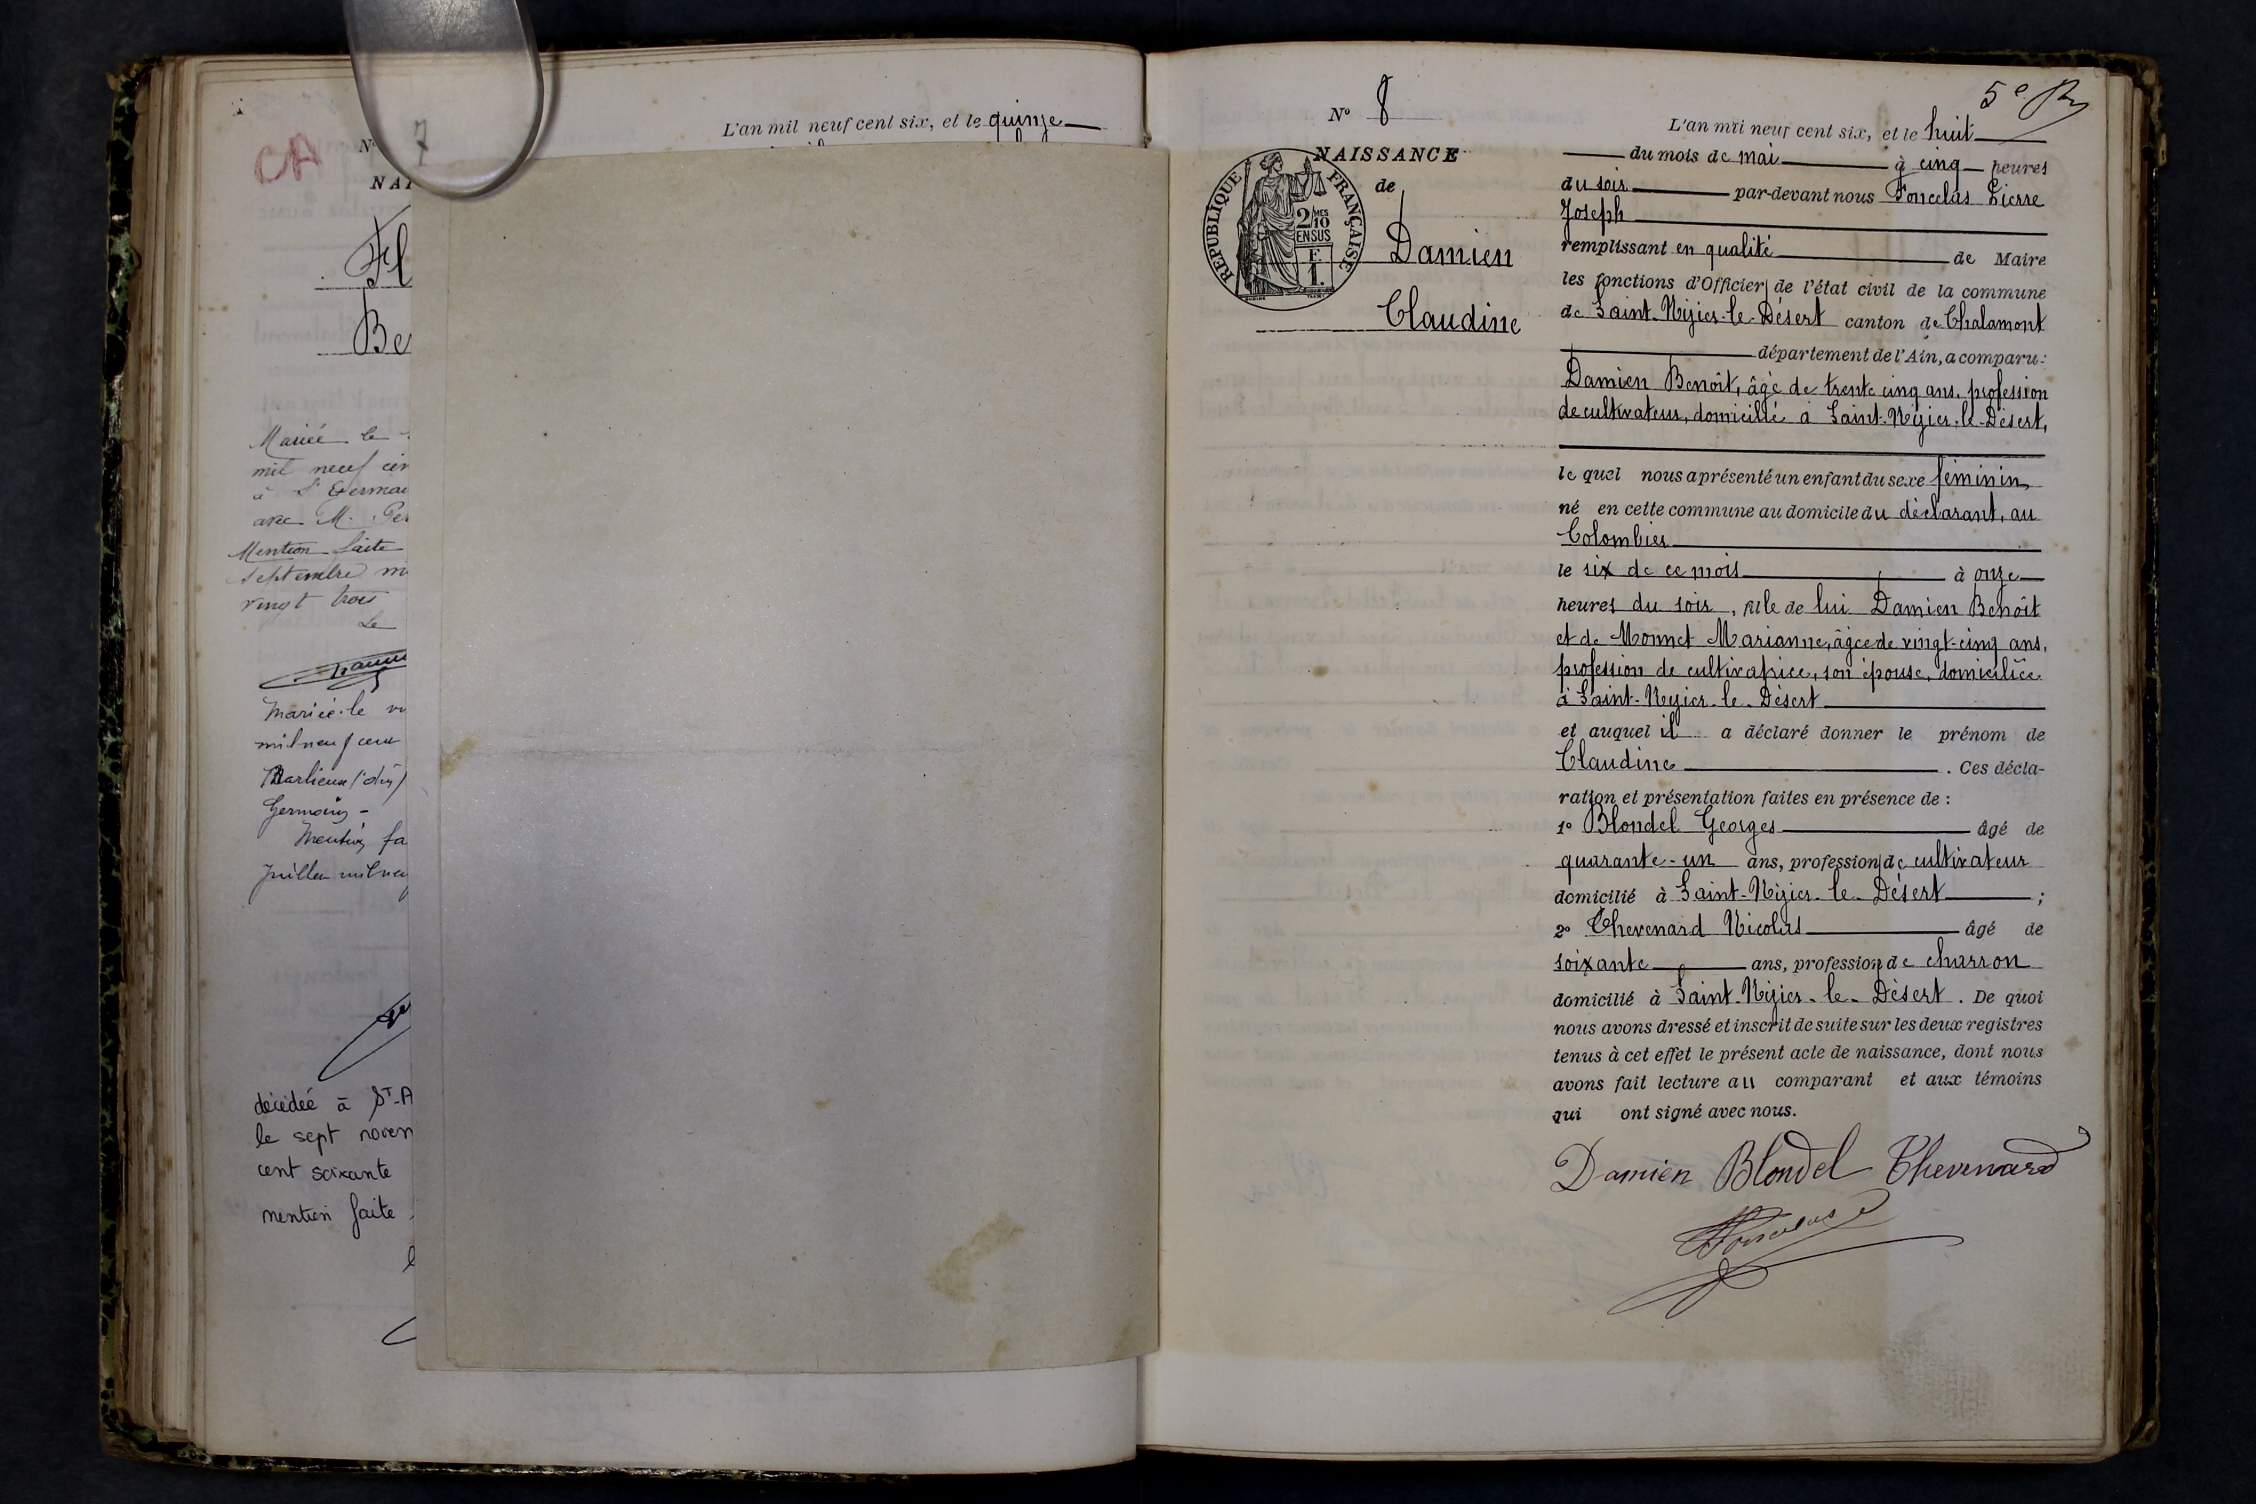 CA
N° 7
L'an mil neuf cent six, et le quinze
NAI
Fl
Be
Mariée le
mil neuf cen
à St Germai
avec M. Per
Mention faite
septembre m
vingt trois
Le
Mariée le
mil neuf cent
Marlieux (Ain)
Germain
Mention fa
Juillet mil neuf
décédée à St-A
le sept novem
cent soixante
mention faite
5e
N° 8
NAISSANCE
de
Damien
Claudine
RÉPUBLIQUE FRANÇAISE
2/10 MES
EN SUS
F
1.
L'an mil neuf cent six, et le huit
du mois de mai à cinq heures
du soir par-devant nous Fonceclas Pierre
Joseph
remplissant en qualité de Maire
les fonctions d'Officier de l'état civil de la commune
de Saint-Nizier-le-Désert canton de Chalamont
département de l'Ain, a comparu:
Damien Benoît, âgé de trente cinq ans, profession
de cultivateur, domicilié à Saint-Nizier-le-Désert,
le quel nous a présenté un enfant du sexe féminin
né en cette commune au domicile du déclarant, au
Colombier
le six de ce mois à onze
heures du soir, fille de lui Damien Benoît
et de Monnet Marianne, âgée de vingt-cinq ans,
profession de cultivatrice, son épouse, domiciliée
à Saint-Nizier-le-Désert
et auquel il a déclaré donner le prénom de
Claudine. Ces décla-
ration et présentation faites en présence de :
1° Blondel Georges âgé de
quarante-un ans, profession de cultivateur
domicilié à Saint-Nizier-le-Désert ;
2° Thevenard Nicolas âgé de
soixante ans, profession de charron
domicilié à Saint-Nizier-le-Désert. De quoi
nous avons dressé et inscrit de suite sur les deux registres
tenus à cet effet le présent acte de naissance, dont nous
avons fait lecture au comparant et aux témoins
qui ont signé avec nous.
Damien Blondel Thevenard